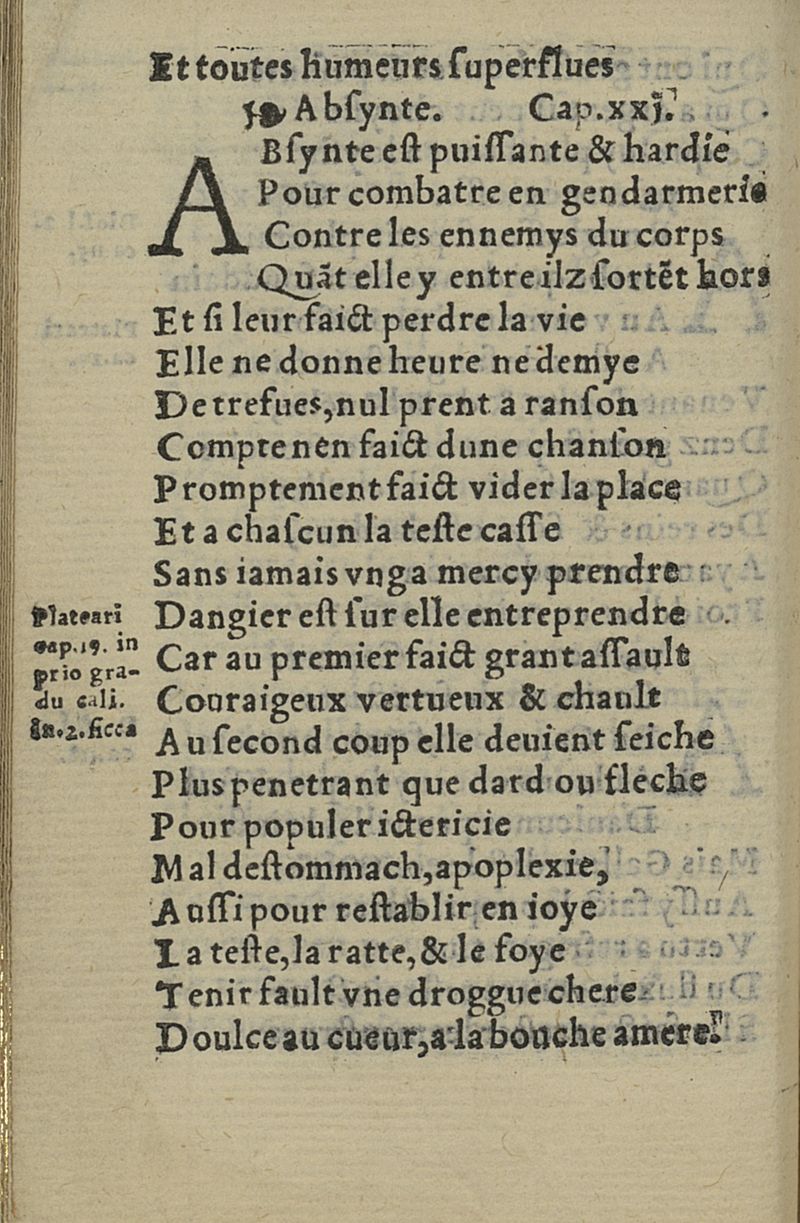 Et toutes humeurs ſuperflues
❧ Abſynte. Cap.xxj.
ABſynte eſt puiſſante & hardie
Pour combatre en gendarmerie
Contre les ennemys du corps
Quãt elle y entre ilz ſortẽt hors
Et ſi leur faict perdre la vie
Elle ne donne heure ne demye
De trefues, nul prent a ranſon
Compte nen faict dune chanſon
Promptement faict vider la place
Et a chaſcun la teſte caſſe
Sans iamais vng a mercy prendre
Dangier eſt ſur elle entreprendre
Car au premier faict grant aſſault
Couraigeux vertueux & chault
Au ſecond coup elle deuient ſeiche
Plus penetrant que dard ou fleche
Pour populer ictericie
Mal deſtommach, apoplexie,
Auſſi pour reſtablir en ioye
La teſte, la ratte, & le foye
Tenir fault vne droggue chere
Doulce au cueur, a la bouche amere.
Plateari
cap.19. in
prio gra-
du cali.
&n.2.ſicca